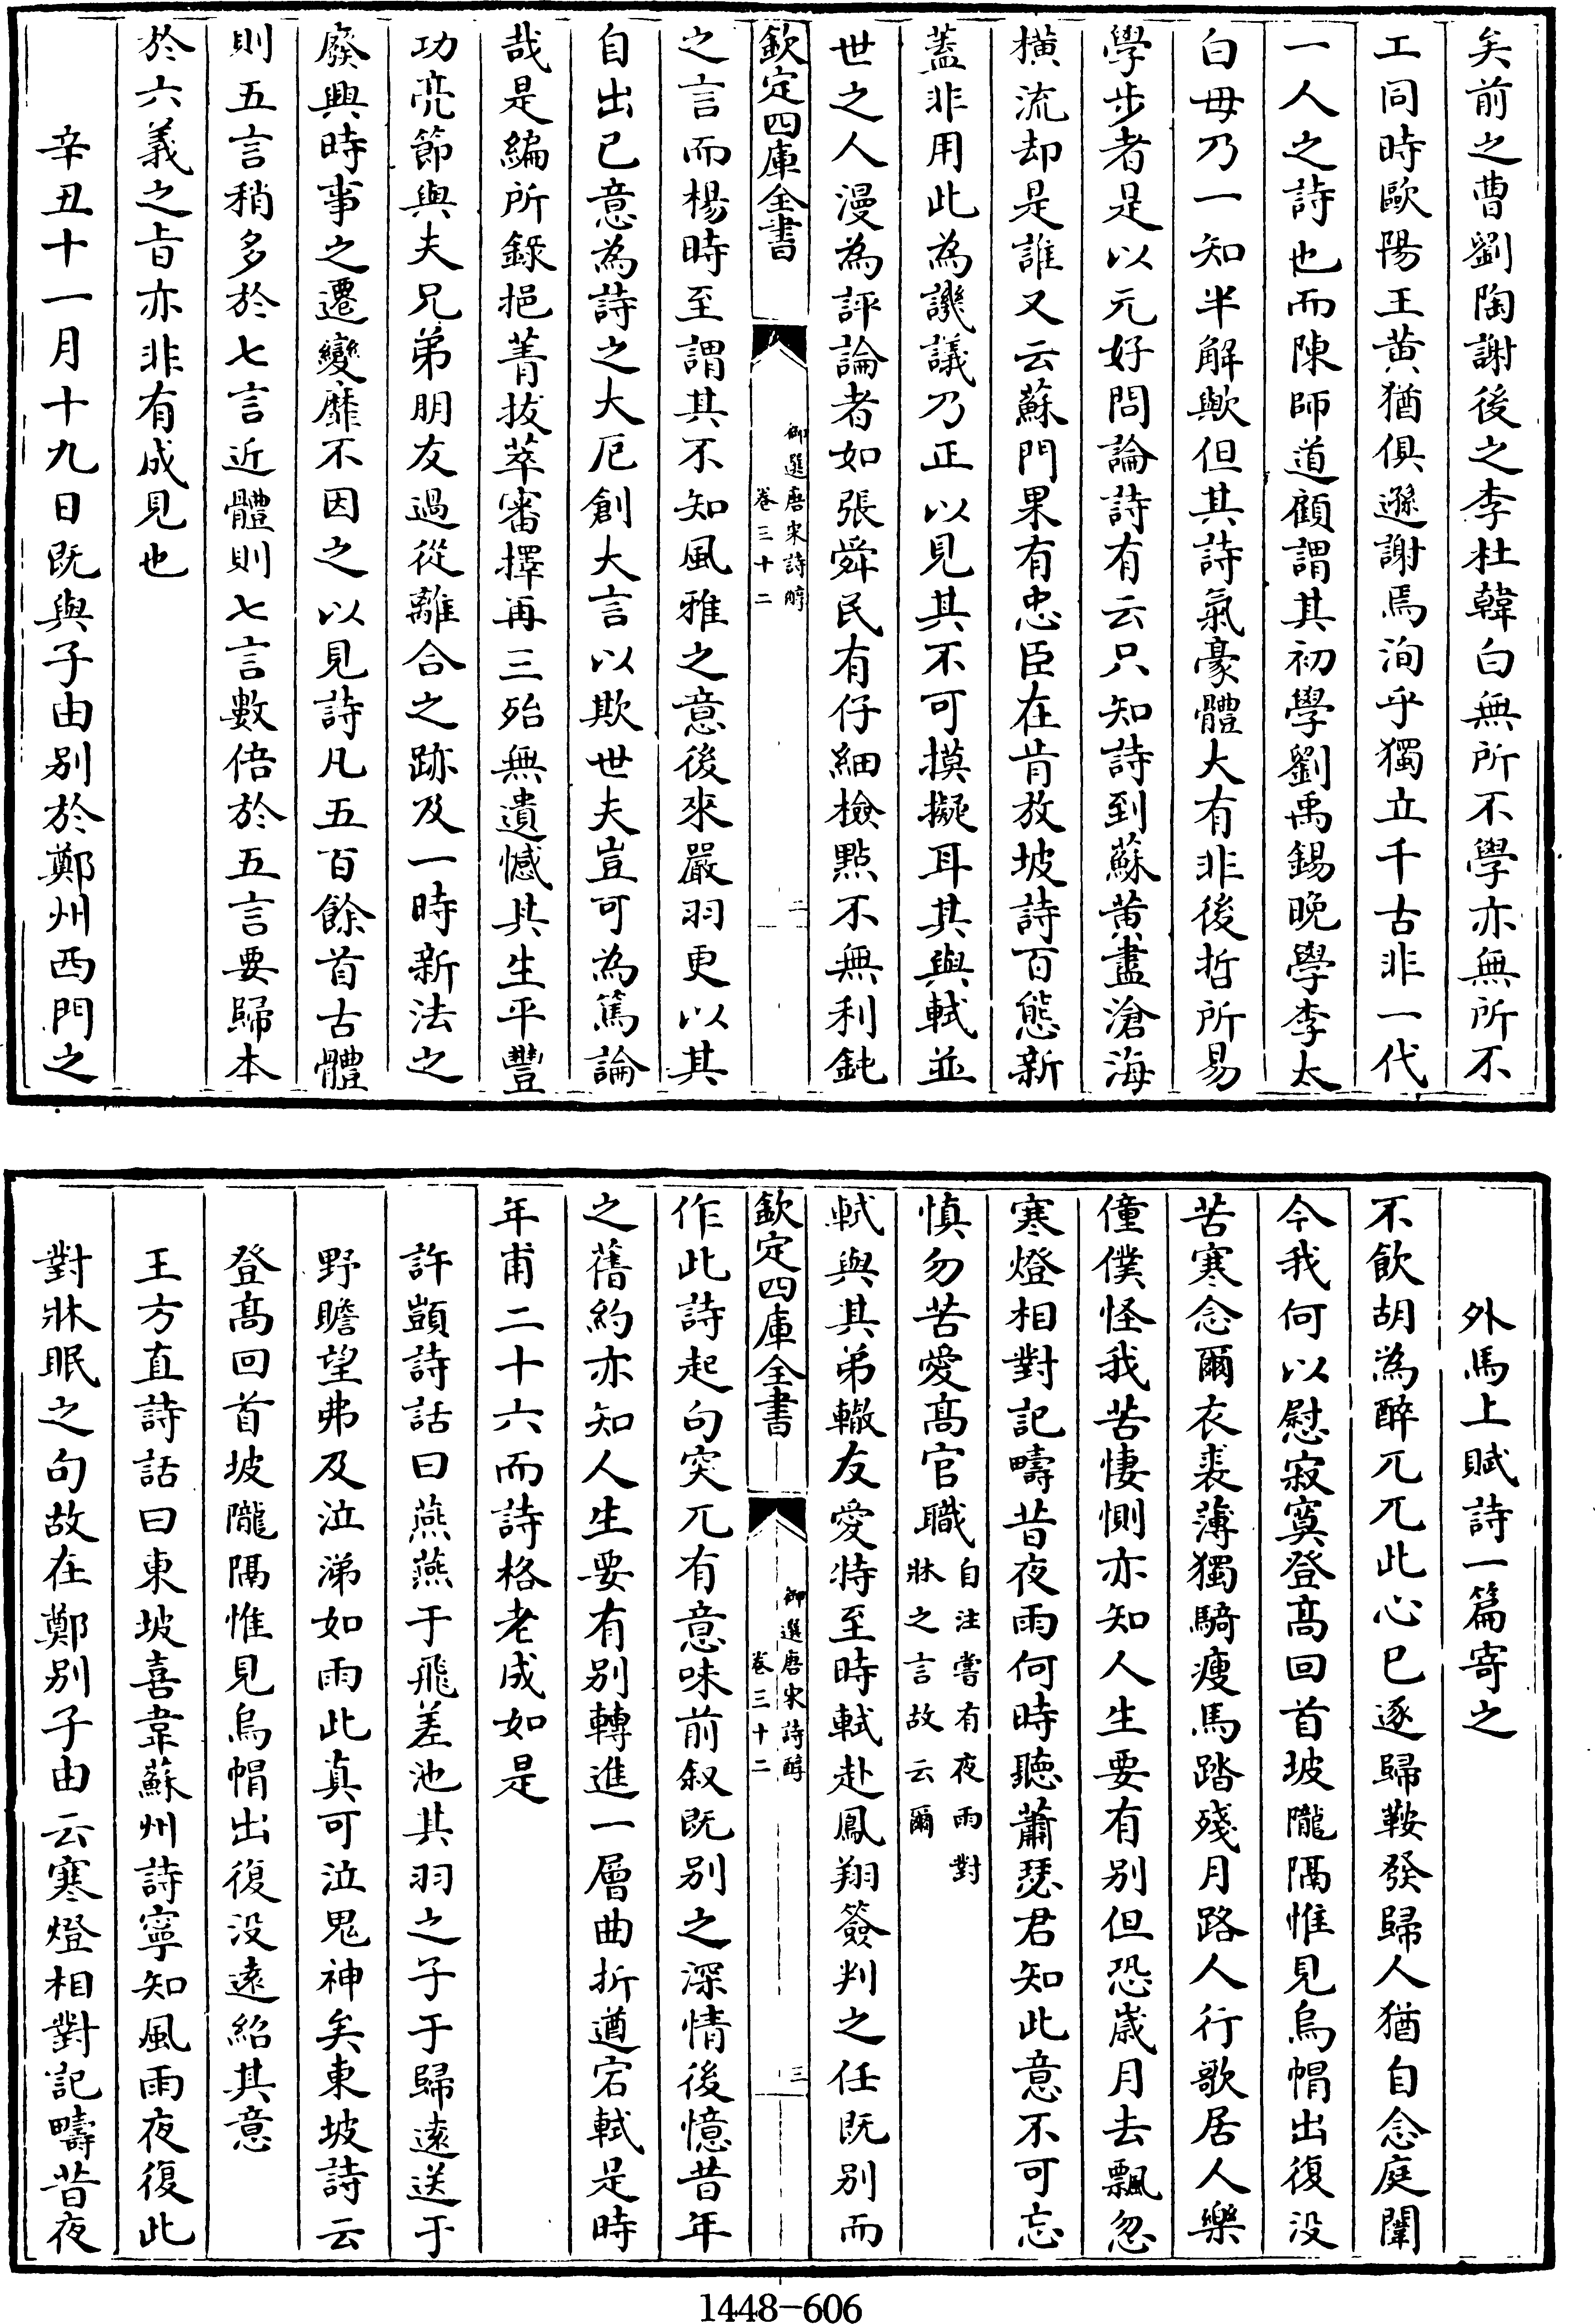 矣前之曹劉陶謝後之李杜韓白無所不學亦無所不
工同時歐陽王黄猶俱遜謝焉洵乎獨立千古非一代
一人之詩也而陳師道顧謂其初學劉禹錫晚學李太
白毋乃一知半解歟但其詩氣豪體大有非後哲所易
學步者是以元好問論詩有云只知詩到蘇黄盡滄海
横流却是誰又云蘇門果有忠臣在肯放坡詩百態新
蓋非用此為譏議乃正以見其不可摸擬耳其與軾並
世之人漫為評論者如張舜民有仔細檢點不無利鈍
欽定四庫全書
御選唐宋詩醇
卷三十二
二
之言而楊時至謂其不知風雅之意後來嚴羽更以其
自出已意為詩之大厄創大言以欺世夫豈可為篤論
哉是編所錄挹菁拔萃審擇再三殆無遺憾其生平豐
功亮節與夫兄弟朋友過從離合之跡及一時新法之
廢興時事之遷變靡不因之以見詩凡五百餘首古體
則五言稍多於七言近體則七言數倍於五言要歸本
於六義之旨亦非有成見也
辛丑十一月十九日既與子由别於鄭州西門之
外馬上賦詩一篇寄之
不飲胡為醉兀兀此心已逐歸鞍發歸人猶自念庭闈
今我何以慰寂寞登髙回首坡隴隔惟見烏帽出復没
苦寒念爾衣裘薄獨騎瘦馬踏殘月路人行歌居人樂
僮僕怪我苦悽惻亦知人生要有别但恐歳月去飄忽
寒燈相對記疇昔夜雨何時聽蕭瑟君知此意不可忘
慎勿苦愛髙官職自注嘗有夜雨對
牀之言故云爾
軾與其弟轍友愛特至時軾赴鳳翔簽判之任既别而
欽定四庫全書
御選唐宋詩醇
卷三十二
三
作此詩起句突兀有意味前叙既别之深情後憶昔年
之舊約亦知人生要有别轉進一層曲折遒宕軾是時
年甫二十六而詩格老成如是
許顗詩話曰燕燕于飛差池其羽之子于歸逺送于
野瞻望弗及泣涕如雨此真可泣鬼神矣東坡詩云
登髙回首坡隴隔惟見烏帽出復没逺紹其意
王方直詩話曰東坡喜韋蘇州詩寧知風雨夜復此
對牀眠之句故在鄭别子由云寒燈相對記疇昔夜
1448-606